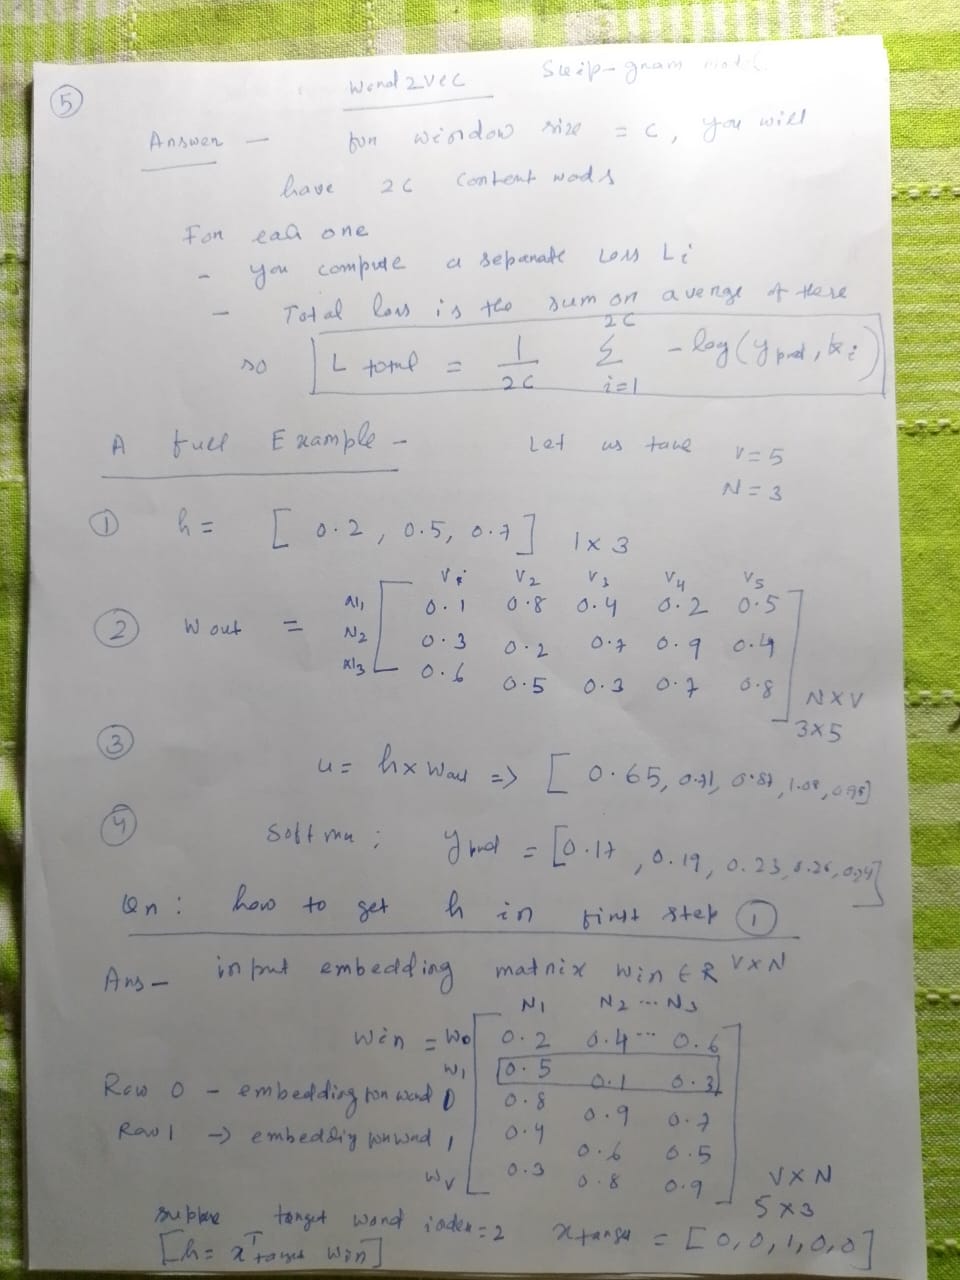 5
Word2vec Skip-gram model
Answer — for window size = c, you will
have 2c context wods
For each one
- you compute a separate Loss Li
- Total loss is the sum or average of these
so L total = 1/2c 2c Σ i=1 - log(y pred, i)
A full Example - Let us take V=5
N=3
① h = [0.2, 0.5, 0.7] 1x3
V1 V2 V3 V4 V5
② W out = N1 0.1 0.8 0.4 0.2 0.5
N2 0.3 0.2 0.7 0.9 0.4
N3 0.6 0.5 0.3 0.7 0.8 NXV
3x5
③ u = h x Wout => [0.65, 0.71, 0.87, 1.08, 0.98]
④ Softmax ; y pred = [0.17, 0.19, 0.23, 0.26, 0.24]
Qn : how to get h in first step ①
Ans - input embedding matrix Win ∈ R VXN
N1 N2 ... N3
Win = W0 0.2 0.4 ... 0.6
W1 0.5 0.1 0.3
Row 0 - embedding for word 0 0.8 0.9 0.7
Row 1 -> embeddig for word 1 0.4 0.6 0.5
Wv 0.3 0.8 0.9 VXN
5x3
suppose target word index=2 x target = [0,0,1,0,0]
[h = x T target Win]